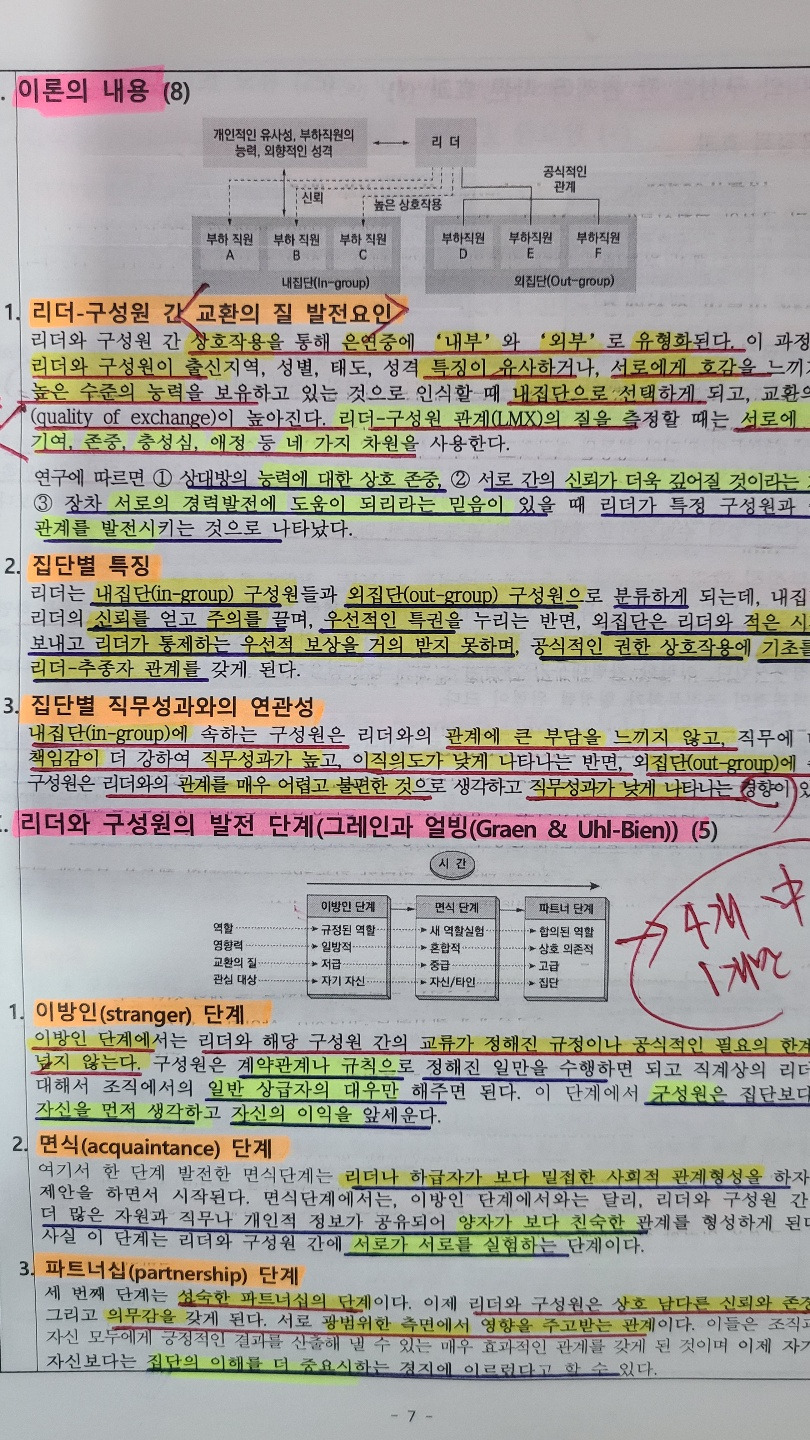 . 이론의 내용 (8)
개인적인 유사성, 부하직원의
능력, 외향적인 성격
리 더
공식적인
관계
신뢰
높은 상호작용
부하 직원
A
부하 직원
B
부하 직원
C
부하직원
D
부하직원
E
부하직원
F
내집단(In-group)
외집단(Out-group)
1. 리더-구성원 간 교환의 질 발전요인
리더와 구성원 간 상호작용을 통해 은연중에 ‘내부’와 ‘외부’로 유형화된다. 이 과정
리더와 구성원이 출신지역, 성별, 태도, 성격 특징이 유사하거나, 서로에게 호감을 느끼
높은 수준의 능력을 보유하고 있는 것으로 인식할 때 내집단으로 선택하게 되고, 교환의
(quality of exchange)이 높아진다. 리더-구성원 관계(LMX)의 질을 측정할 때는 서로에
기여, 존중, 충성심, 애정 등 네 가지 차원을 사용한다.
연구에 따르면 ① 상대방의 능력에 대한 상호 존중, ② 서로 간의 신뢰가 더욱 깊어질 것이라는
③ 장차 서로의 경력발전에 도움이 되리라는 믿음이 있을 때 리더가 특정 구성원과
관계를 발전시키는 것으로 나타났다.
2. 집단별 특징
리더는 내집단(in-group) 구성원들과 외집단(out-group) 구성원으로 분류하게 되는데, 내집
리더의 신뢰를 얻고 주의를 끌며, 우선적인 특권을 누리는 반면, 외집단은 리더와 적은 시
보내고 리더가 통제하는 우선적 보상을 거의 받지 못하며, 공식적인 권한 상호작용에 기초를
리더-추종자 관계를 갖게 된다.
3. 집단별 직무성과와의 연관성
내집단(in-group)에 속하는 구성원은 리더와의 관계에 큰 부담을 느끼지 않고, 직무에
책임감이 더 강하여 직무성과가 높고, 이직의도가 낮게 나타나는 반면, 외집단(out-group)에
구성원은 리더와의 관계를 매우 어렵고 불편한 것으로 생각하고 직무성과가 낮게 나타나는 경향이 있
. 리더와 구성원의 발전 단계(그레인과 얼빙(Graen & Uhl-Bien)) (5)
시 간
이방인 단계
면식 단계
파트너 단계
역할 규정된 역할 새 역할실험 합의된 역할
영향력 일방적 혼합적 상호 의존적
교환의 질 저급 중급 고급
관심 대상 자기 자신 자신/타인 집단
4개 中
1개만
1. 이방인(stranger) 단계
이방인 단계에서는 리더와 해당 구성원 간의 교류가 정해진 규정이나 공식적인 필요의 한계
넘지 않는다. 구성원은 계약관계나 규칙으로 정해진 일만을 수행하면 되고 직계상의 리더
대해서 조직에서의 일반 상급자의 대우만 해주면 된다. 이 단계에서 구성원은 집단보다
자신을 먼저 생각하고 자신의 이익을 앞세운다.
2. 면식(acquaintance) 단계
여기서 한 단계 발전한 면식단계는 리더나 하급자가 보다 밀접한 사회적 관계형성을 하자
제안을 하면서 시작된다. 면식단계에서는, 이방인 단계에서와는 달리, 리더와 구성원 간
더 많은 자원과 직무나 개인적 정보가 공유되어 양자가 보다 친숙한 관계를 형성하게 된다
사실 이 단계는 리더와 구성원 간에 서로가 서로를 실험하는 단계이다.
3. 파트너십(partnership) 단계
세 번째 단계는 성숙한 파트너십의 단계이다. 이제 리더와 구성원은 상호 남다른 신뢰와 존경
그리고 의무감을 갖게 된다. 서로 광범위한 측면에서 영향을 주고받는 관계이다. 이들은 조직과
자신 모두에게 긍정적인 결과를 산출해 낼 수 있는 매우 효과적인 관계를 갖게 된 것이며 이제 자기
자신보다는 집단의 이해를 더 중요시하는 경지에 이르렀다고 할 수 있다.
- 7 -